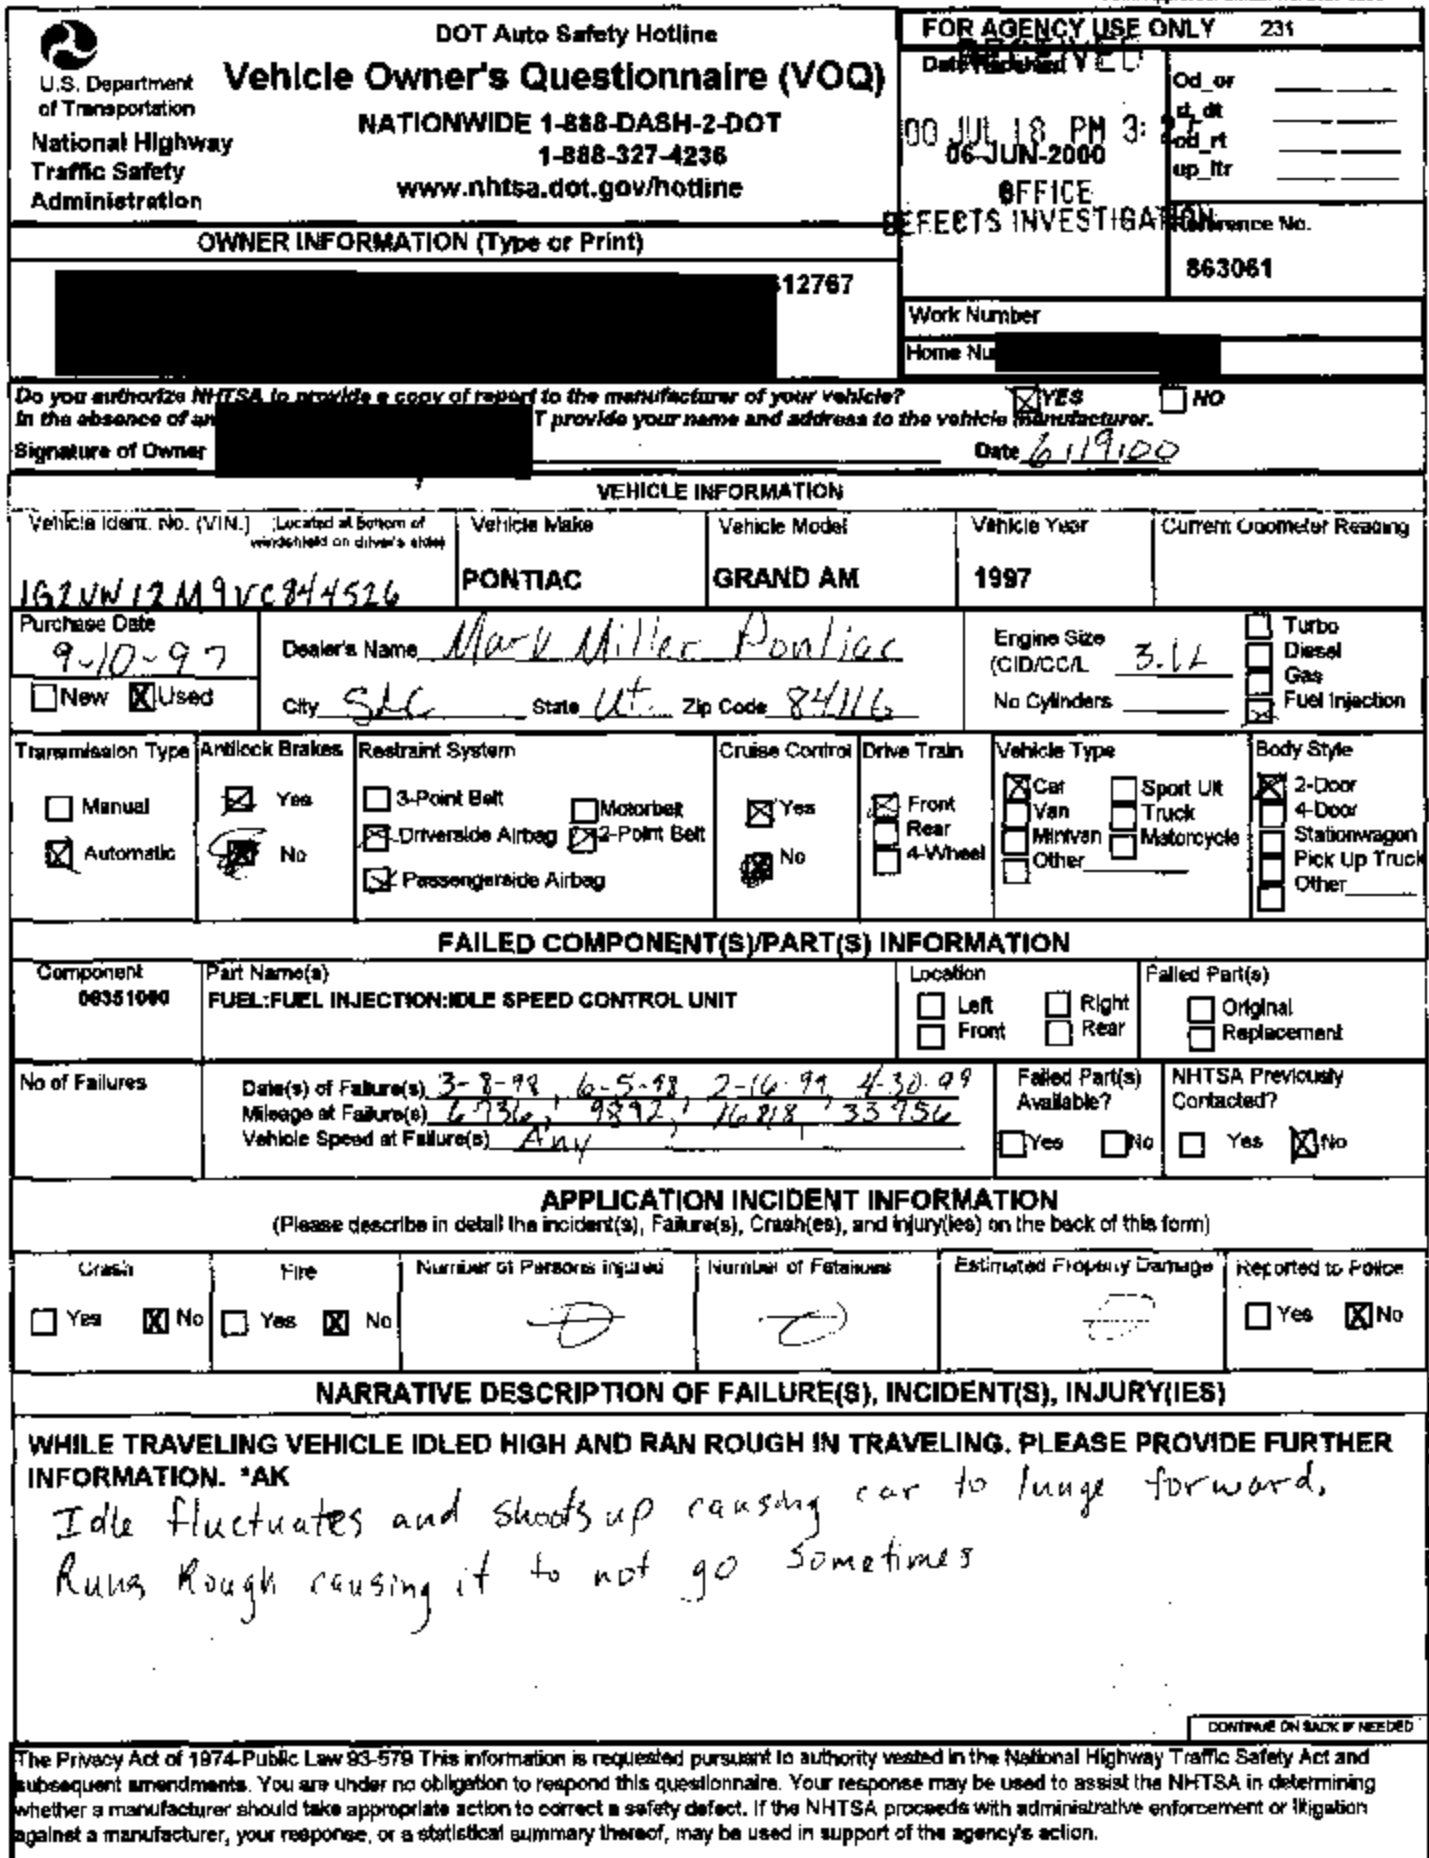 DOT Auto Safety Hotline
Vehicle Owner's Questionnaire (VOQ)
NATIONWIDE 1-888-DASH-2-DOT
1-888-327-4236
www.nhtsa.dot.gov/hotline
U.S. Department
of Transportation
National Highway
Traffic Safety
Administration
FOR AGENCY USE ONLY 231
RECEIVED
Date Received
00 JUL 18 PM 3:
06-JUN-2000
OFFICE
DEFECTS INVESTIGATION
Od_or
rt_dt
od_rt
up_ltr
Reference No.
863061
OWNER INFORMATION (Type or Print)
12767
Work Number
Home Nu
Do you authorize NHTSA to provide a copy of report to the manufacturer of your vehicle? YES NO
In the absence of an T provide your name and address to the vehicle manufacturer.
Signature of Owner Date 6/19/00
VEHICLE INFORMATION
Vehicle Ident. No. (VIN.) (Located at bottom of
windshield on driver's side)
1G2NW12M9VC844526
Vehicle Make
PONTIAC
Vehicle Model
GRAND AM
Vehicle Year
1997
Current Odometer Reading
Purchase Date
9-10-97
New Used
Dealer's Name Mark Miller Pontiac
City SLC State Ut. Zip Code 84116
Engine Size
(CID/CC/L 3.1L
No Cylinders
Turbo
Diesel
Gas
Fuel Injection
Transmission Type
Manual
Automatic
Antilock Brakes
Yes
No
Restraint System
3-Point Belt
Motorbelt
Driverside Airbag 2-Point Belt
Passengerside Airbag
Cruise Control
Yes
No
Drive Train
Front
Rear
4-Wheel
Vehicle Type
Car Sport Ult
Van Truck
Minivan Motorcycle
Other
Body Style
2-Door
4-Door
Stationwagon
Pick Up Truck
Other
FAILED COMPONENT(S)/PART(S) INFORMATION
Component
Part Name(s)
FUEL:FUEL INJECTION:IDLE SPEED CONTROL UNIT
Location
Left Right
Front Rear
Failed Part(s)
Original
Replacement
No of Failures
Date(s) of Failure(s) 3-8-98, 6-5-98, 2-16-99, 4-30-99
Mileage at Failure(s) 6736, 9892, 16818, 33956
Vehicle Speed at Failure(s) Any
Failed Part(s)
Available?
Yes No
NHTSA Previously
Contacted?
Yes No
APPLICATION INCIDENT INFORMATION
(Please describe in detail the incident(s), Failure(s), Crash(es), and injury(ies) on the back of this form)
Crash
Yes No
Fire
Yes No
Number of Persons Injured
Number of Fatalities
Estimated Property Damage
Reported to Police
Yes No
NARRATIVE DESCRIPTION OF FAILURE(S), INCIDENT(S), INJURY(IES)
WHILE TRAVELING VEHICLE IDLED HIGH AND RAN ROUGH IN TRAVELING. PLEASE PROVIDE FURTHER
INFORMATION. *AK
Idle fluctuates and shoots up causing car to lunge forward.
Runs Rough causing it to not go sometimes
CONTINUE ON BACK IF NEEDED
The Privacy Act of 1974-Public Law 93-579 This information is requested pursuant to authority vested in the National Highway Traffic Safety Act and
subsequent amendments. You are under no obligation to respond this questionnaire. Your response may be used to assist the NHTSA in determining
whether a manufacturer should take appropriate action to correct a safety defect. If the NHTSA proceeds with administrative enforcement or litigation
against a manufacturer, your response, or a statistical summary thereof, may be used in support of the agency's action.